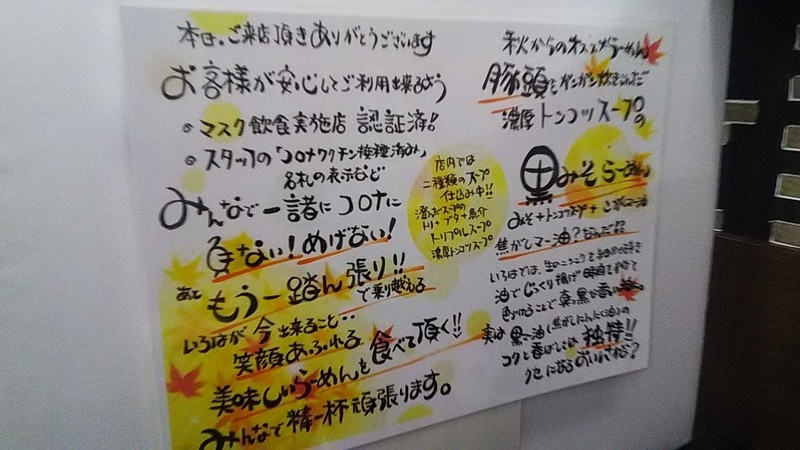 本日、ご来店頂きありがとうございます
お客様が安心してご利用出来るよう
マスク飲食実施店 認証済!
スタッフの「コロナワクチン接種済み」
名札の表示など
みんなで一諸にコロナに
負ない!めげない!
あと もう一踏ん張り!!
で乗り越える
いろはが今出来ること…
笑顔あふれる
美味しいらーめんを食べて頂く!!
みんなで精一杯頑張ります。
店内では
二種類のスープ
仕込み中!!
澄んだスープの
トリ+ブタ+魚介
トリプルスープ
濃厚トンコツスープ
秋からのオススメらーめん
豚頭をガンガン炊き込んだ
濃厚トンコツスープの
黒みそらーめん
みそ+トンコツスープ+こがしマー油
焦がしマー油?なんだ!?
いろはでは、生のにんにくを
油でじっくり揚げ時間をかけて
色づけることで真っ黒な香り
実は黒マー油(焦がしにんにく油)の
コクと香ばしさは独特!!
クセになるおいしさ